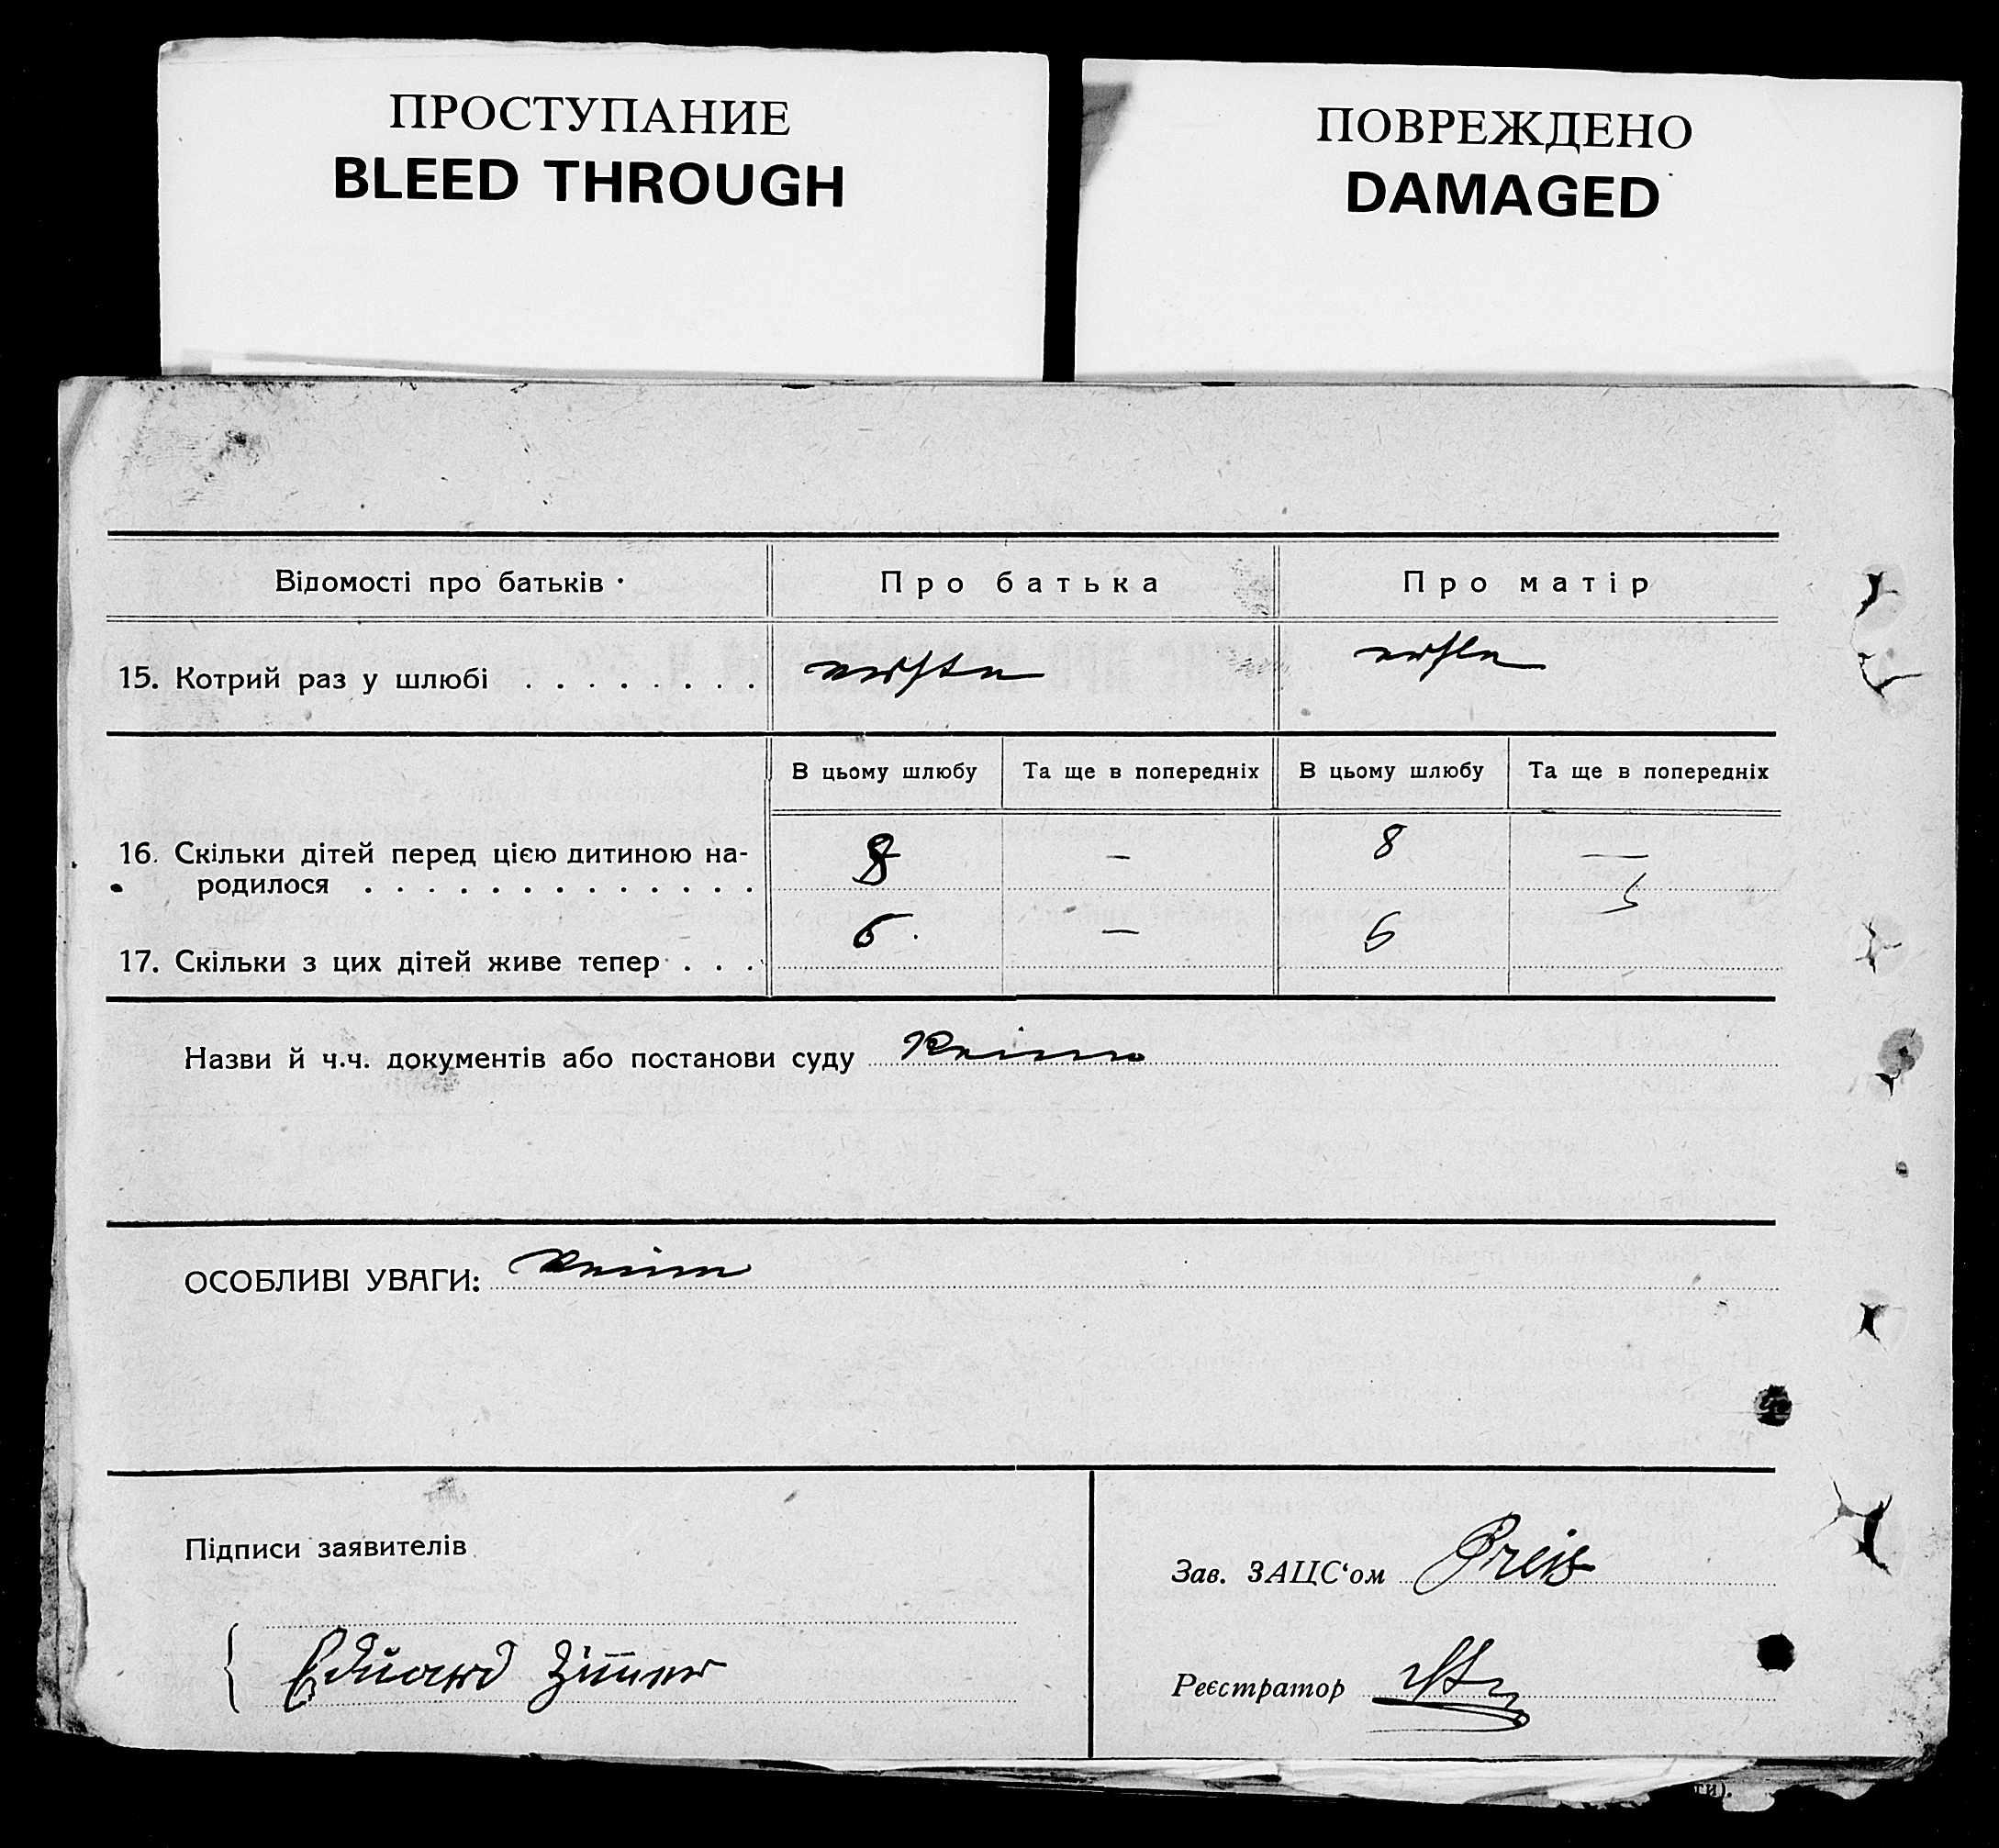 ПРОСТУПАНИЕ
BLEED THROUGH
ПОВРЕЖДЕНО
DAMAGED
Відомості про батьків
Про батька
Про матір
15. Котрий раз у шлюбі . . . . . . . .
erste
erste
В цьому шлюбу
Та ще в попередніх
В цьому шлюбу
Та ще в попередніх
16. Скільки дітей перед цією дитиною на-
родилося . . . . . . . . . . . . .
8
–
8
—
17. Скільки з цих дітей живе тепер . . .
6
–
6
Назви й ч.ч. документів або постанови суду
ОСОБЛИВІ УВАГИ:
Підписи заявителів
Eduard
Зав. ЗАЦС‘ом Preis
Реєстратор
ги).